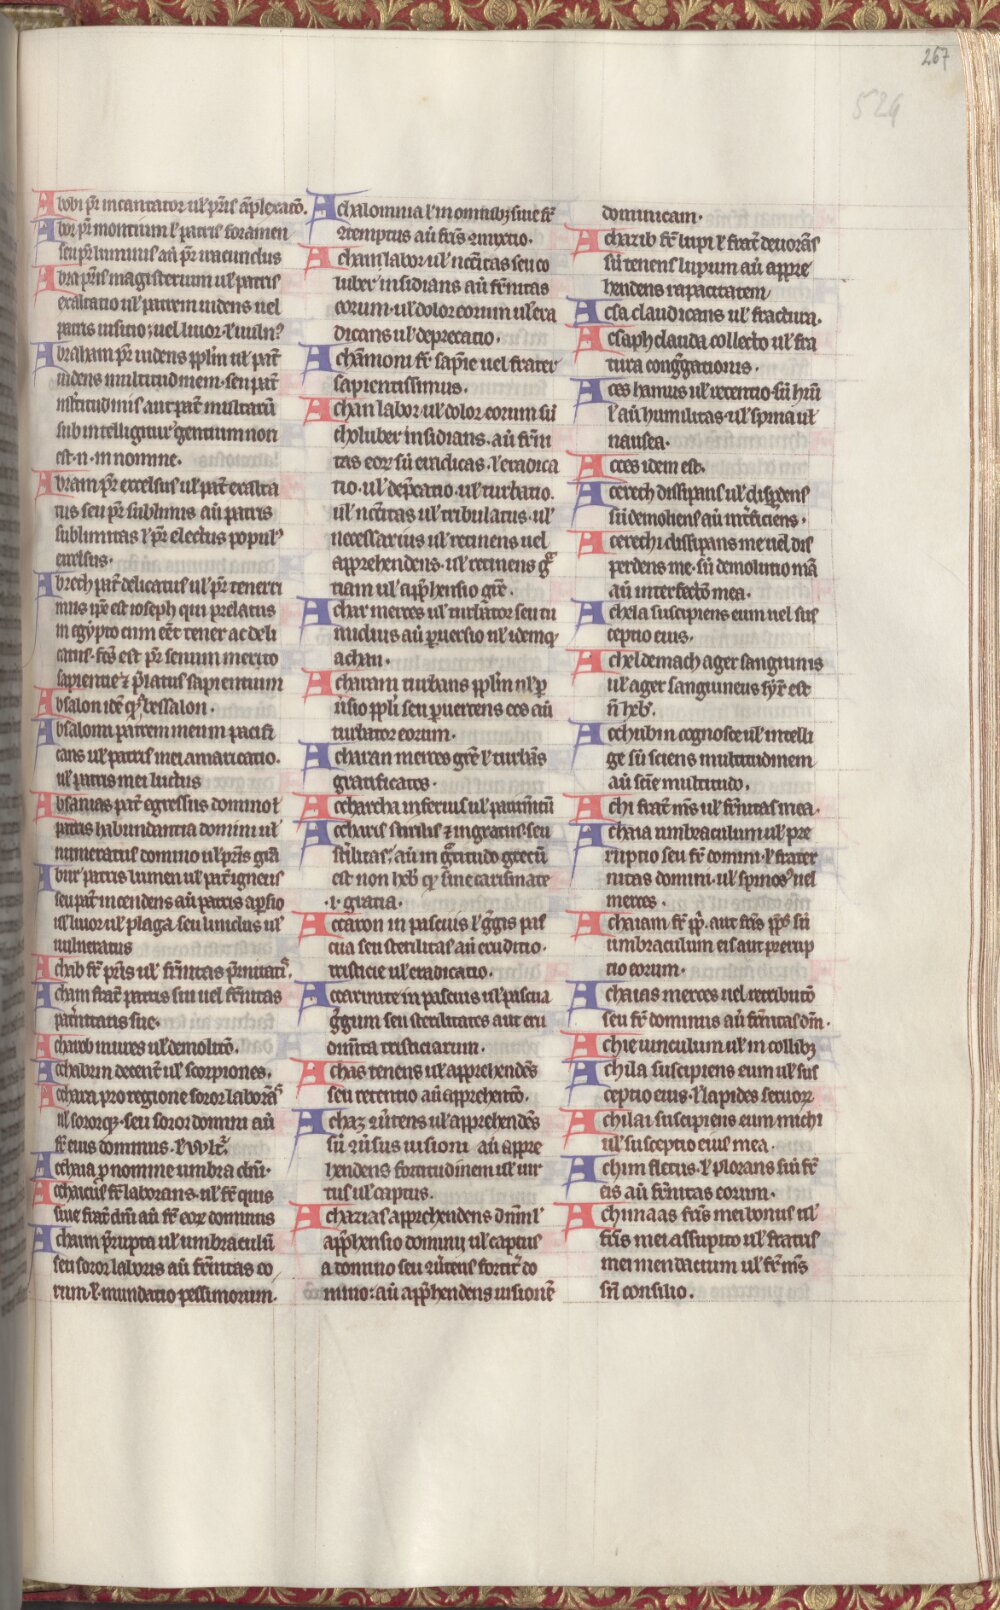 267
524
Abobi pr̄ incantator ul̓ pr̄is ap̄lexatō.
Abor pr̄ montium l̓ patris foramen
seu pr̄ luminis aū pr̄ iracundus
Abra pr̄is magisterium ul̓ patris
exaltatio ul̓ patrem uidens uel
patris uisitio; uel liuor l̓ uuln̓
Abraham pr̄ uidens pplm̄ ul̓ pat̄
uidens multitudinem seu pat̄
multitudinis aut pat̄ multarū
sub intelligitur gentium non
est .n. in nomine.
Abram pr̄ excelsus ul̓ pat̄ exalta
tus seu pr̄ sublimis aū patris
sublimitas l̓ pr̄ electus popul̓
excelsus.
Abrech pat̄ delicatus ul̓ pr̄ teneri
mus ip̄e est ioseph qui prelatus
in egypto cum eēt tener ac deli
catus. sēs est pr̄ senum merito
sapientie ⁊ p̄latus sapientium
Absalon idē qđ bessalon.
Absalom patrem meum pacifi
cans ul̓ patris mei amaricatio.
ul̓ patris mei luctus
Absanias pat̄ egressus domino l̓
patris habundantia domini ul̓
numeratus domino ul̓ pr̄is grā
Abiur patris lumen ul̓ pat̄ igneus
seu pat̄ incendens aū patris ap̄sio
ul̓ liuor ul̓ plaga seu liuidus ul̓
uulneratus
Achab fr̄ pr̄is ul̓ fr̄nitas p̄rnitati.
Acham frat̄ patris sui uel fr̄nitas
pat̄nitatis sue.
Achareb mures ul̓ demolitō.
Achabrin decent̄ ul̓ scorpiones.
Achara pro regione soror laborās̄
ul̓ sororq; seu soror domini aū
fr̄ eius dominus.
Achaia p nomine umbra dn̄i.
Achaicus fr̄ laborans. ul̓ fr̄ quis
siue frat̄ dn̄i aū fr̄ eoꝝ dominus
Achaim p̄rupta ul̓ umbraculū
seu soror laboris aū fr̄nitas eo
rum. l̓ mundatio pessimorum.
Achalomnia l̓ in omnibꝫ siue fr̄
ꝯtemptus aū frīs ꝯmixtio.
Acham labor ul̓ nēcitas seu co
luber insidians aū fr̄nitas
eorum. ul̓ dolor eorum ul̓ era
dicans ul̓ deprecatio.
Achamoni fr̄ sap̄ie uel frater
sapientissimus.
Achan labor ul̓ dolor eorum siū
choluber insidians. aū fr̄ni
tas eoꝝ siū eradicas. l̓ eradica
tio. ul̓ dep̄catio ul̓ turbatio.
ul̓ nēcitas ul̓ tribulatus. ul̓
necessarius ul̓ retinens uel
apprehendens. ul̓ retinens grā
tiam ul̓ app̄hensio gr̄e.
Achar merces ul̓ turbator seu tu
multus aū puersio ul̓ idemq;
achan.
Acharam turbans pplm̄ ul̓ p
uersio ppl̄i seu puertens eos aū
turbator eorum.
Acharan merces gr̄e l̓ turbās
gratificatos.
Acharcha inferius ul̓ patiṁtū
Acharis sterilis ⁊ ingratus. seu
st̄ilitas, aū ingr̄titudo grecū
est non heb̄ q; sine carismate
.i. gratia.
Accaron in pascuis l̓ gr̄gis pas
cua seu sterilitas aū eruditio.
tristicie ul̓ eradicatio.
Accaronite in pascuis ul̓ pascua
gr̄gum seu sterilitates aut eru
dim̄ta tristiciarum.
Achas tenens ul̓ apprehendēs
seu retentio aū apprehentō.
Achaz ꝯtinens ul̓ apprehendēs
siū ꝯuersus uisioni aū appre
hendens fortitudinem ul̓ uir
tus ul̓ captus.
Achazias apprehendens dn̄m l̓
app̄hensio domini ul̓ captus
a domino seu ꝯtinens fortit̄ do
mino: aū app̄hendens uisionē
dominicam.
Achazib fr̄ lupi l̓ frat̄ deuorās
siū tenens lupum aū appre
hendens rapacitatem
Acsa claudicans ul̓ fractura.
Acsaph clauda collectō ul̓ fra
tura congr̄gationis.
Aces hamus ul̓ retentio siū hm̄
l̓ aū humilitas ul̓ spina ul̓
nausea.
Acces idem est.
Acerech dissipans ul̓ disp̄dens
siū demoliens aū int̄ficiens.
Acerechi dissipans me uel dis
perdens me. siū demolitio mā
aū interfectō mea.
Achela suscipiens eum uel sus
ceptio eius.
Acheldemach ager sanguinis
ul̓ ager sanguineus syr̄ est
n̄ heb̓.
Achubin cognosce ul̓ intelli
ge siū sciens multitudinem
aū sciē multitudo.
Achi frat̄ ms̄ ul̓ fr̄nitas mea.
Achaia umbraculum ul̓ pre
ruptio seu fr̄ domini. l̓ frater
nitas domini. ul̓ spinos̓ uel
merces.
Achaiam fr̄ ip̄i. aut frīs ip̄is siū
umbraculum eis aut prerup
tio eorum.
Achaias merces uel retributō
seu fr̄ dominus aū fr̄nitas dn̄i.
Achie uinculum ul̓ in collibꝫ
Achila suscipiens eum ul̓ sus
ceptio eius. l̓ lapides seruoꝝ
Achilai suscipiens eum michi
ul̓ susceptio eius mea.
Achim fletus. l̓ plorans siū fr̄
eis aū fr̄nitas eorum.
Achimaas frīs mei bonus ul̓
frīs mei assumptio ul̓ fratris
mei mendacium ul̓ fr̄ ms̄
sn̄ consilio.